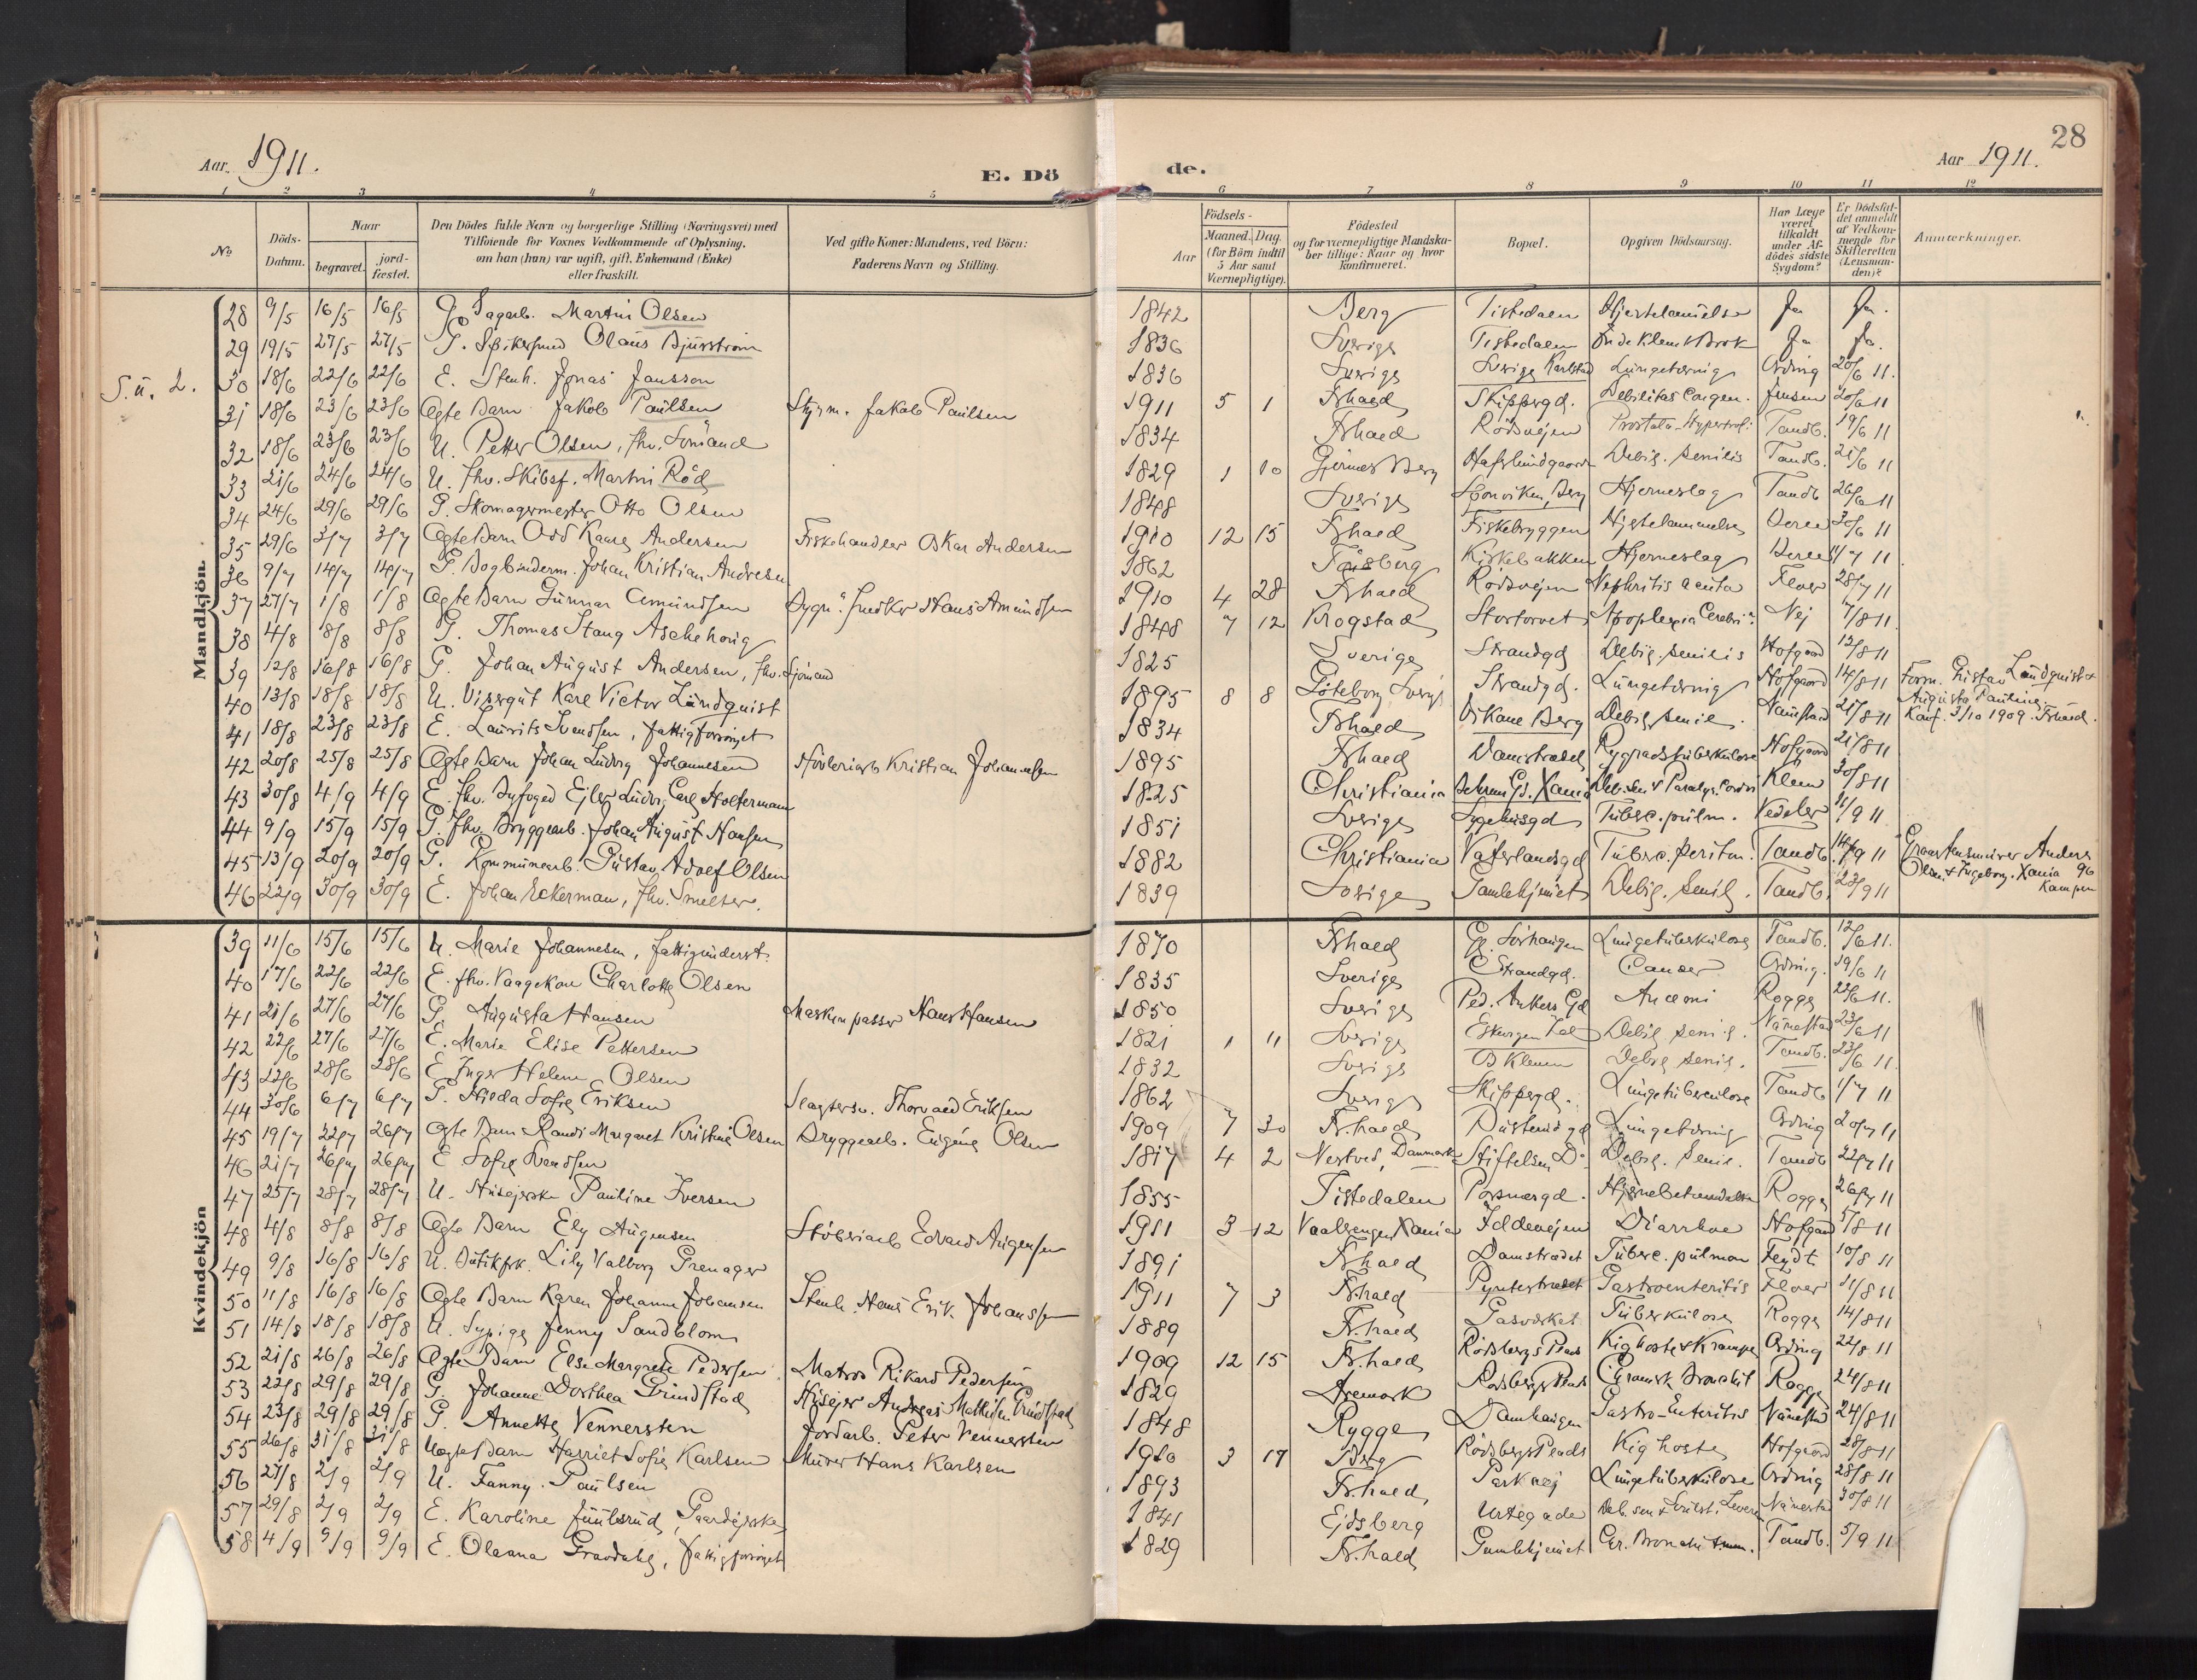 Aar. 1911.
E. Dö
de.
Aar 1911.
28
1 2 3 4 5 6 7 8 9 10 11 12
No
Döds-Datum.
Naar
begravet.
jordfæstet.
Den Dödes fulde Navn og borgerlige Stilling (Næringsvei) med
Tilföiende for Voxnes Vedkommende af Oplysning,
om han (hun) var ugift, gift, Enkemand (Enke)
eller fraskilt.
Ved gifte Koner: Mandens, ved Börn:
Faderens Navn og Stilling.
Födsels-
Aar
Maaned. Dag.
(for Börn indtil
5 Aar samt
Værnepligtige).
Födested
og for værnepligtige Mandskaber tillige: Naar og hvor
konfirmeret.
Bopæl.
Opgiven Dödsaarsag.
Har Læge
været
tilkaldt
under Afdödes sidste
Sygdom?
Er Dödsfaldet anmeldt
af Vedkommende for
Skifteretten
(Lensmanden)?
Anmærkninger.
Mandkjön.
28 9/5 16/5 16/5 G. Dagarb. Martin Olsen 1842 Berg Tistedalen Hjertelammelse Ja Ja.
29 19/5 27/5 27/5 G. Olaus Bjurström 1836 Sverige Tistedalen Ja Ja.
S. u. 2.
30 18/6 22/6 22/6 E. Stenh. Jonas Jansson 1836 Sverige Sverige Karlstad Lungetæring Ording 20/6 11.
31 18/6 23/6 23/6 Ægte Barn Jakob Paulsen Styrm. Jakob Paulsen 1911 5 1 Fhald Skippergd. Debilitas Congen. Jensen 20/6 11
32 18/6 23/6 23/6 U. Petter Olsen, fhv. Sömand 1834 Fhald Rödsvejen Prostata-Hypertrof. Tandb. 19/6 11
33 21/6 24/6 24/6 U. fhv. Skibsf. Martin Röd 1829 1 10 Berg Debil. senilis Tandb. 21/6 11
34 24/6 29/6 29/6 G. Skomagermester Otto Olsen 1848 Sverige Sponviken, Berg Hjerneslag Tandb 26/6 11
35 29/6 3/7 3/7 Ægte Barn Odd Kaare Andersen Fiskehandler Oskar Andersen 1910 12 15 Fhald Fiskebryggen Hjertelammelse 30/6 11
36 9/7 14/7 14/7 G. Bogbinderm. Johan Kristian Andresen 1862 Tönsberg Kirkebakken Hjerneslag 11/7 11
37 27/7 1/8 1/8 Ægte Barn Gunnar Amundsen Snedker Hans Amundsen 1910 4 28 Fhald Rödsvejen Nephritis acuta Flor 28/7 11
38 4/8 8/8 8/8 G. Thomas Stang Aschehoug 1848 7 12 Krogstad Stortorvet Apoplexia Cerebri Nej 7/8 11
39 12/8 16/8 16/8 G. Johan August Andersen, fhv. Sjömand 1825 Sverige Strandgd Debil. senilis Hofgaard 12/8 11
40 13/8 18/8 18/8 U. Visergut Karl Victor Lundquist 1895 8 8 Göteborg Sverige Strandgd. Lungetæring Hofgaard 14/8 11 Foræ. Gustav Lundquist & Augusta Pauline, Konf. 3/10 1909. Fhald.
41 18/8 23/8 23/8 E. Laurits Svendsen, fattigforsörget 1834 Fhald Berg Debil. senil. 21/8 11
42 20/8 25/8 25/8 Ægte Barn Johan Ludvig Johannesen Hövleriarb Kristian Johannesen 1895 Fhald Damstrædet Rygradstuberkulose Hofgaard 21/8 11
43 30/8 4/9 4/9 E. fhv. Byfoged Ejler Ludv. Carl Holtermann 1825 Christiania Xania Klem 30/8 11
44 9/9 15/9 15/9 G. fhv. Bryggearb. Johan August Hansen 1851 Sverige Sygehusgd Tuberc. pulm. Vedeler 11/9 11
45 13/9 20/9 20/9 G. Kommunearb. Gustav Adolf Olsen 1882 Christiania Vaterlandsgd Tuberc. periton. Tandb. 14/9 11 Anders Olsen & Ingeborg. Xania 96 Kampen
46 22/9 30/9 30/9 E. Johan Eckerman, fhv. Smelter. 1839 Sverige Gamlehjemet Debil. senil. Tandb. 23/9 11
Kvindekjön
39 11/6 15/6 15/6 U. Marie Johannesen, fattigunderst. 1870 Fhald Lungetuberkulose Tandb. 12/6 11.
40 17/6 22/6 22/6 E. fhv. Vaagekone Charlotte Olsen 1835 Sverige Strandgd. Cancer Ording. 19/6 11
41 21/6 27/6 27/6 G. Augusta Hansen Maskinpasser Hans Hansen 1850 Sverige Ped. Ankers Gd Anæmi Rogge 22/6 11.
42 22/6 27/6 27/6 E. Marie Elise Pettersen 1821 1 11 Sverige Debil. senil. 23/6 11
43 22/6 28/6 28/6 E. Inger Helene Olsen 1832 Sverige Debil. senil. Tandb. 23/6 11.
44 30/6 6/7 6/7 G. Hilda Sofie Eriksen Slagtersv. Thorvald Eriksen 1862 Sverige Skippergd. Lungetuberculose Tandb 1/7 11
45 19/7 22/7 26/7 Ægte Barn Randi Margaret Kristine Olsen Bryggearb. Eugéne Olsen 1909 7 30 Fr.hald Lungetæring Ording 20/7 11
46 21/7 26/7 26/7 E Sofie 1817 4 2 Nestved, Danmark Stiftelsen Debil. senil. Tandb 22/7 11
47 25/7 28/7 28/7 U. Husejerske Pauline Iversen 1855 Tistedalen Hjernebetændelse Rogge 26/7 11
48 4/8 8/8 8/8 Ægte Barn Ely Augensen Edvard Augensen 1911 3 12 Vaalerengen Xania Iddevejen Diarrhoe Hofgaard 5/8 11
49 9/8 16/8 16/8 U. Butikfrk. Lily Valborg Grenager 1891 Fhald Damstrædet Tuberc. pulmon Feydt 10/8 11
50 11/8 16/8 16/8 Ægte Barn Karen Johanne Johansen Stenh. Hans Erik Johanssen 1911 7 3 Fr.hald Gastroenteritis Flor 11/8 11
51 14/8 18/8 18/8 U. Sypige Jenny Sandblom 1889 Fr.hald Gasværket Tuberkulose Rogge 14/8 11
52 21/8 26/8 26/8 Ægte Barn Else Margrete Pedersen Matros Rikard Pedersen 1909 12 15 Fr.hald Rödsbergs Plads Kighoste & Krampe Ording 22/8 11
53 22/8 29/8 29/8 G. Johanne Dorthea Grindstad Husejer Andreas Mathisen Grindstad 1829 Aremark Rödsbergs Plads Chronisk Bronchit Rogge 24/8 11
54 23/8 29/8 29/8 G. Annette Vennersten Jordarb. Peter Vennersten 1848 Rygge Damhaugen Gastro-Enteritis 24/8 11
55 26/8 31/8 31/8 Uægte Barn Harriet Sofie Karlsen Murer Hans Karlsen 1910 3 17 Berg Rödsbergs Plads Kighoste Hofgaard 28/8 11
56 27/8 2/9 2/9 U. Fanny Paulsen 1893 Fr.hald Parkvej Lungetuberkulose Ording 28/8 11
57 29/8 2/9 2/9 E. Karoline Juulsrud, Gaardejerske 1841 Eidsberg Urtegade 30/8 11
58 4/9 9/9 9/9 E. Oleana Gravdahl, fattigforsörget 1829 Fr.hald Gamlehjemet Tandb. 5/9 11